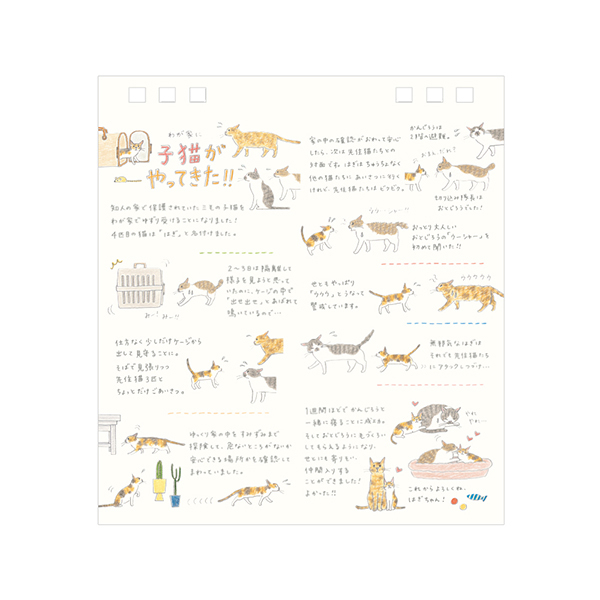 わが家に
子猫が
やってきた!!
知人の家で保護されていたこの子猫を
わが家でゆずり受けることになりました!
4匹目の猫は"はぎ"と名付けました。
みー! みー!!
2〜3日は隔離して
様子を見ようと思って
いたのに、ケージの中で
"出せ出せ"とあばれて
鳴いているので…
仕方なく少しだけケージから
出して見守ることに。
そばで見張りつつ
先住猫3匹と
ちょっとだけごあいさつ。
ゆっくり家の中をすみずみまで
探検して、危ないところがないか
安心できる場所かを確認して
まわっていました。
家の中の確認がおわって安心
したら、次は先住猫たちとの
対面です。はぎはちゅうちょなく
他の猫たちにあいさつに行く
けれど、先住猫たちはどうだ?。
かんじろうは
おもしだれ?
切り込み隊長は
おとじろうだった!
ウウーシャーッ!!
おっとり大人しい
おとじろうの"ウーシャー"を
初めて聞いた!!
せともやっぱり
"ウウウ"とうなって
警戒しています。
ウウウウウ
無邪気なはぎは
それでも先住猫たち
にアタックしつづけ…
1週間ほどでかんじろうと
一緒に寝ることに成功。
そしておとじろうに毛づくろい
してもらえるようになり、
せとにも寄りも…
仲間入りする
ことができました!
よかった!!
やれ
やれ…
これからよろしくね、
はぎちゃん!